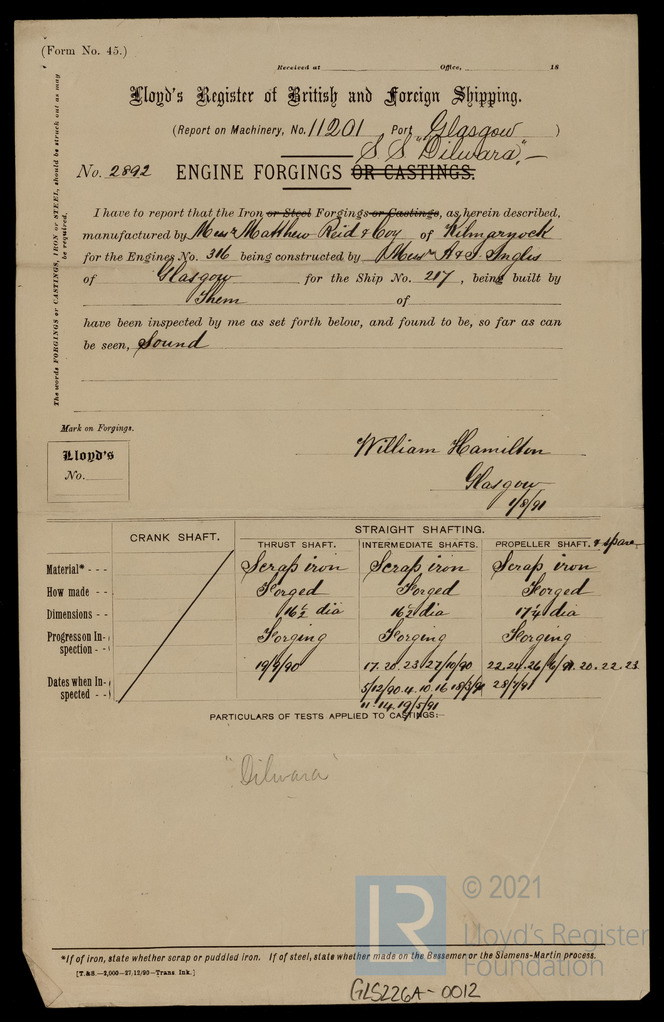 (Form No. 45.)
Received at Office, 18
Lloyd's Register of British and Foreign Shipping.
(Report on Machinery, No. 11201 Port Glasgow )
S S "Dilwara".—
No. 2892 ENGINE FORGINGS OR CASTINGS.
The words FORGINGS or CASTINGS, IRON or STEEL, should be struck out as may be required.
I have to report that the Iron or Steel Forgings or Castings, as herein described,
manufactured by Messrs Matthew Reid & Coy of Kilmarnock
for the Engines No. 316 being constructed by Messrs A & J Inglis
of Glasgow for the Ship No. 217, being built by
Them of
have been inspected by me as set forth below, and found to be, so far as can
be seen, Sound
Mark on Forgings.
Lloyd's
No.
William Hamilton
Glasgow
1/8/91
CRANK SHAFT. STRAIGHT SHAFTING.
THRUST SHAFT. INTERMEDIATE SHAFTS. PROPELLER SHAFT. & spare
Material* - - - Scrap iron Scrap iron Scrap iron
How made - - Forged Forged Forged
Dimensions - - 16½ dia 16½ dia 17¼ dia
Progress on Inspection - - Forging Forging Forging
Dates when Inspected - - 19/9/90 17. 20. 23. 27/10/90 22. 24. 26/6/91. 20. 22. 23.
5/12/90. 4. 10. 16 18/3/91 28/7/91
11. 14. 19/5/91
PARTICULARS OF TESTS APPLIED TO CASTINGS:—
"Dilwara"
© 2021
LR Lloyd's Register
Foundation
*If of iron, state whether scrap or puddled iron. If of steel, state whether made on the Bessemer or the Siemens-Martin process.
[T.&S.—3,000—27/12/90—Trans Ink.]
GLS226A-0012